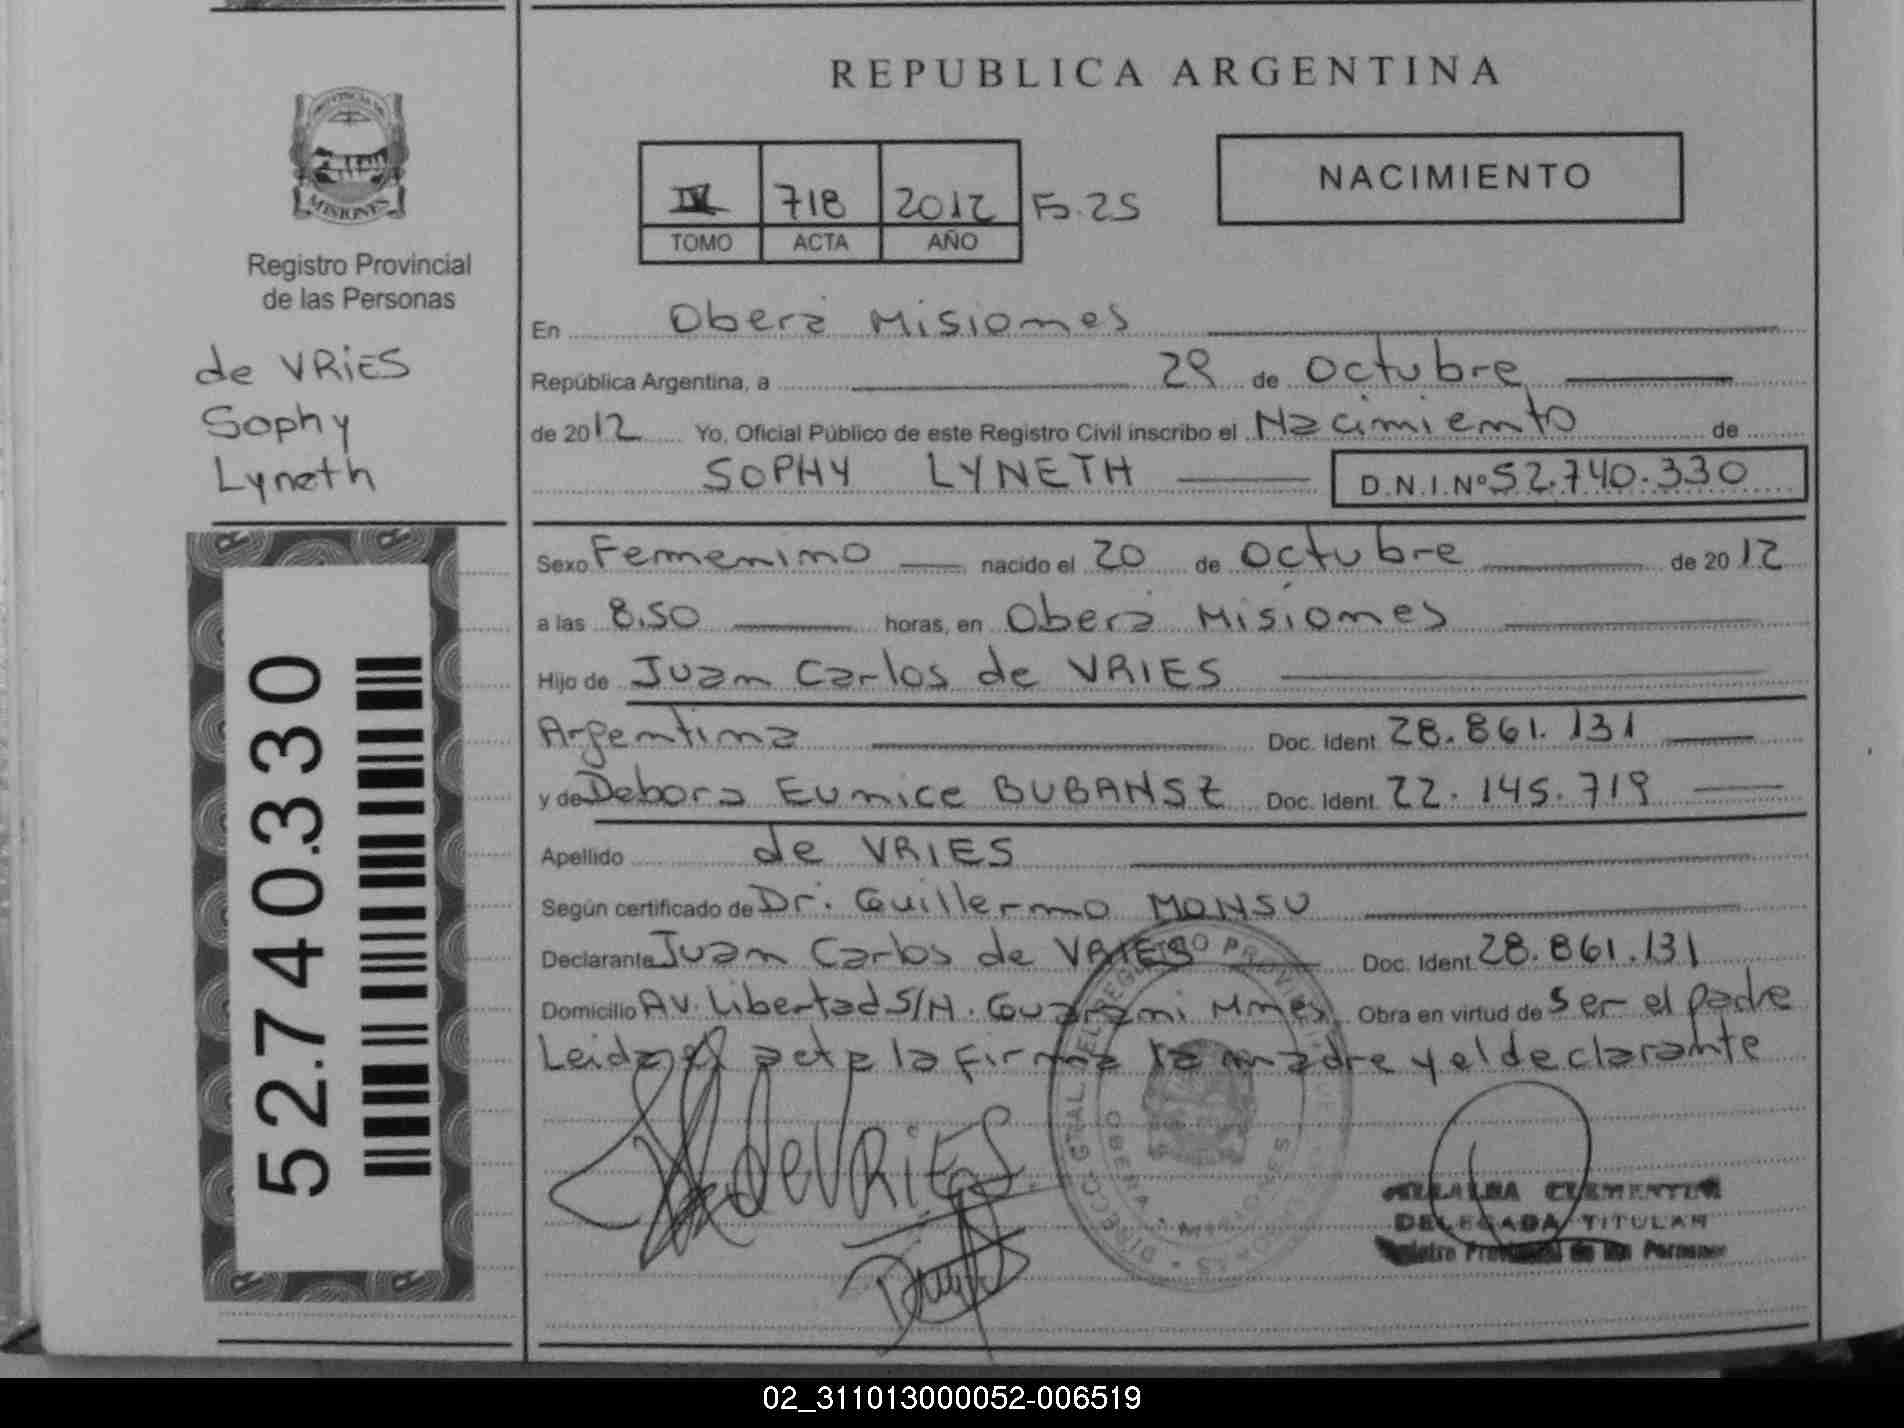 REPUBLICA ARGENTINA
PROVINCIA DE
MISIONES
Registro Provincial
de las Personas
de VRiES
Sophy
Lyneth
52.740.330
IV 718 2012 Fo. 25
TOMO ACTA AÑO
NACIMIENTO
En Oberá Misiones
República Argentina, a 29 de Octubre
de 2012 Yo, Oficial Público de este Registro Civil inscribo el Nacimiento de
SOPHY LYNETH D.N.I.Nº 52.740.330
Sexo Femenino nacido el 20 de Octubre de 2012
a las 8.50 horas, en Oberá Misiones
Hijo de Juan Carlos de VRIES
Argentina Doc. Ident. 28.861.131
y de Debora Eunice BUBANSZ Doc. Ident. 22.145.719
Apellido de VRIES
Según certificado de Dr. Guillermo MONSU
Declarante Juan Carlos de VRIES Doc. Ident. 28.861.131
Domicilio Av. Libertad S/N. Guarani Mnes Obra en virtud de ser el padre
Leida el acta la firma la madre y el declarante
deVRiES
OBERA MISIONES
VILLALBA CLEMENTINA
DELEGADA TITULAR
Registro Provincial de las Personas
02_311013000052-006519